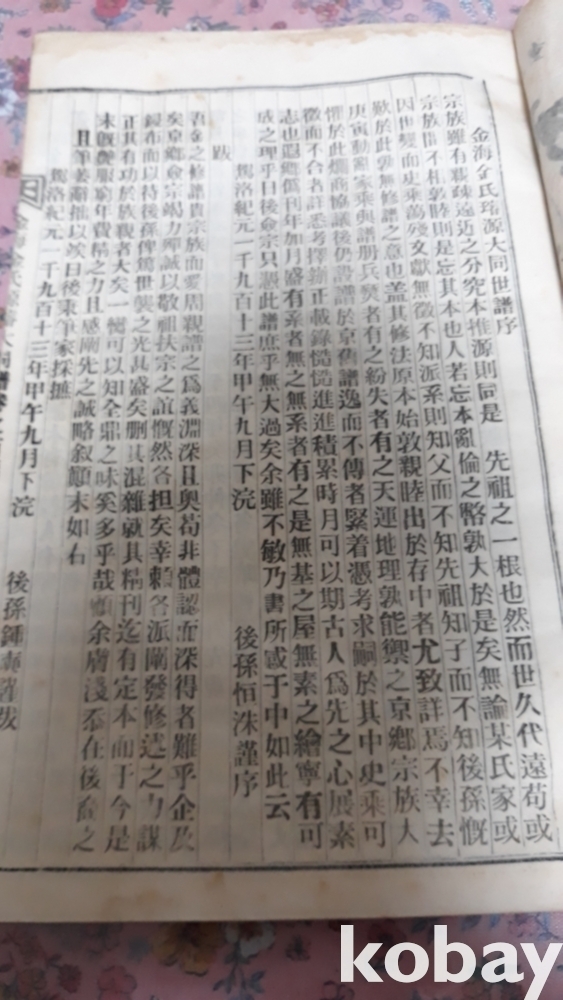 金海金氏璿源大同世譜序
宗族雖有親疎遠近之分究本推源則同是 先祖之一根也然而世久代遠苟或
宗族間不相敦睦則是忘其本也人若忘本亂倫之弊孰大於是矣無論某氏家或
因世變而史乘萬殘文獻無徵不知派系則知父而不知先祖知子而不知後孫慨
歎於此剏無修譜之意也盖其修法原本始敦親睦出於存中者尤致詳焉不幸去
庚寅動亂家乘與譜册兵燹者有之紛失者有之天運地理孰能禦之京鄉宗族大
懼於此爛商協議後仍設譜於京舊譜逸而不傳者緊着憑考求嗣於其中史乘可
徵而不合者詳悉考擇斷正載錄慥慥進進積累時月可以期古人爲先之心展素
志也遐鄉僞刊年加月盛有系者無之無系者有之是無基之屋無素之繪寧有可
成之理乎日後僉宗只憑此譜庶乎無大過矣余雖不敏乃書所感于中如此云
駕洛紀元一千九百十三年甲午九月下浣 後孫恒洙謹序
跋
吾金之修譜貴宗族而愛周親譜之爲義淵深且奥苟非體認而深得者難乎企及
矣京鄉僉宗竭力殫誠以敬祖扶宗之誼慨然各担矣幸賴各派閘發修述之力謀
鋟布而以待後孫俾篤世襲之光甚盛矣刪其混雜就其精刊迄有定本而于今是
正其有功於族親者大矣一臠可以知全鼎之味奚多乎哉顧余膚淺忝在後裔之
末飯麄服窮年費精之力且感爲先之誠略叙顚末如右
且筆姜辭拙以竢日後秉筆家採摭
駕洛紀元一千九百十三年甲午九月下浣 後孫鍾 謹跋